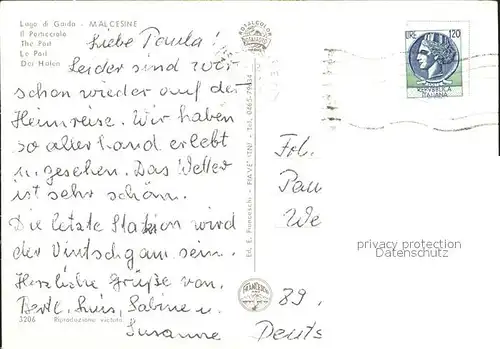 Lago di Garda - MALCESINE
Il Porticciolo
The Port
Le Port
Der Hafen
Liebe Paula!
Leider sind wir
schon wieder auf der
Heimreise. Wir haben
so allerhand erlebt
u. gesehen. Das Wetter
ist sehr schön.
Die letzte Station wird
der Vintschgau sein.
Herzliche Grüße von
Bertl, Luis, Sabine u.
Susanne
3206 Riproduzione vietata
Ed. E. Franceschi - PIAVE TN
LIRE 120
REPVBBLICA
ITALIANA
Frl.
Pau
We
89
Deuts
privacy protection
Datenschutz